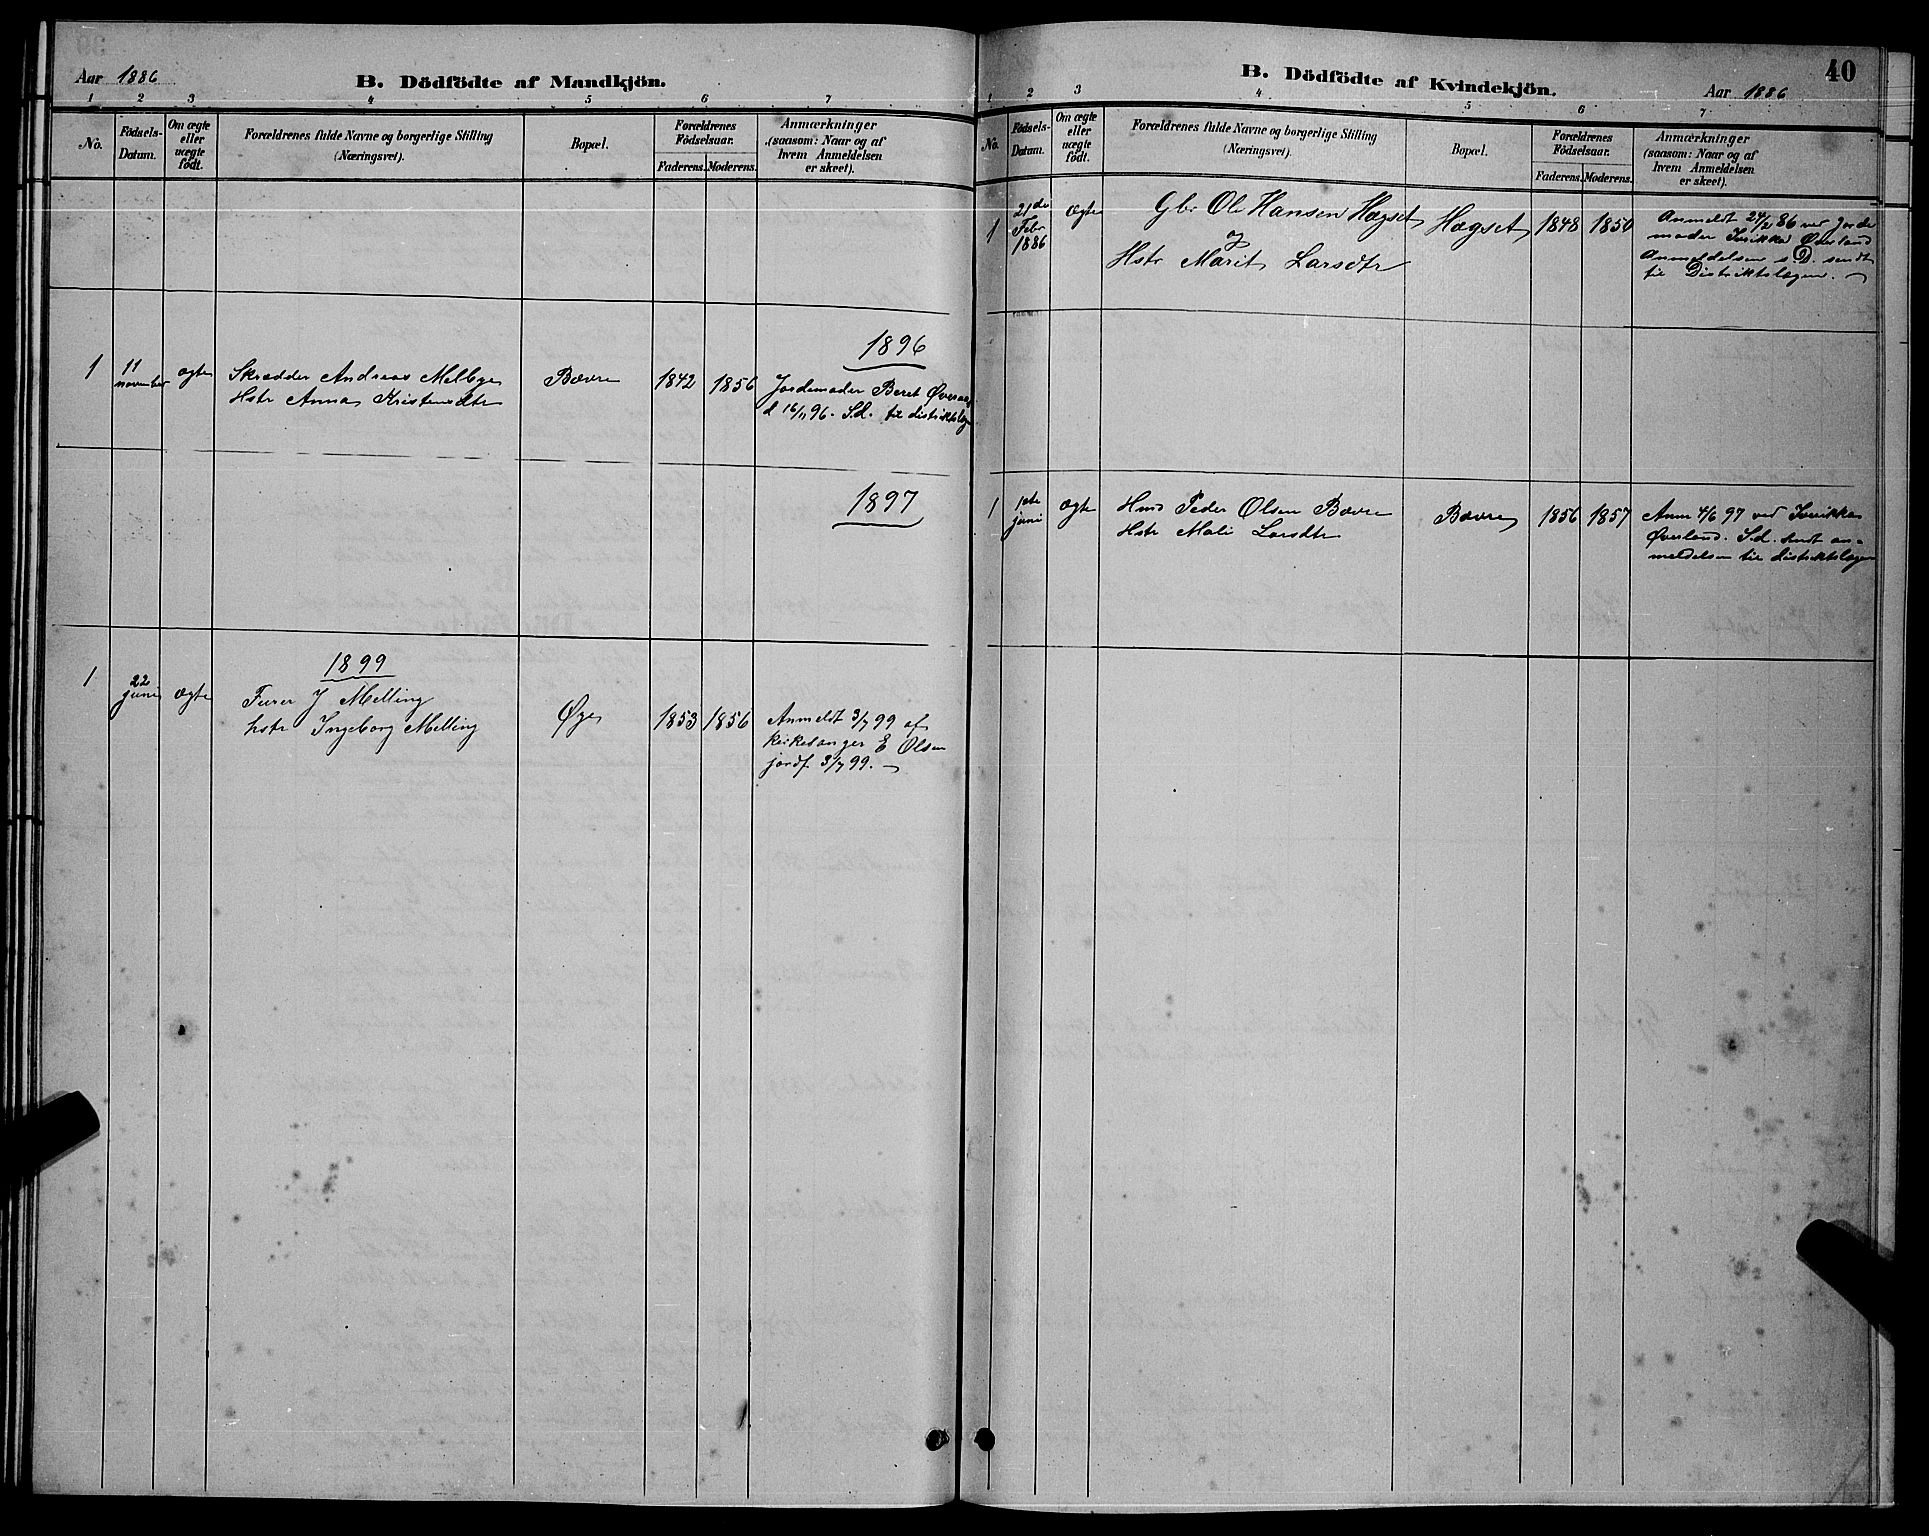 Aar 1886
B. Dödfödte af Mandkjön.
1 2 3 4 5 6 7
No.
Födsels-
Datum.
Om ægte
eller
uægte
födt.
Forældrenes fulde Navne og borgerlige Stilling
(Næringsvei).
Bopæl.
Forældrenes
Födselsaar.
Faderens. Moderens.
Anmærkninger
(saasom: Naar og af
hvem Anmeldelsen
er skeet).
1896
1
11
november
ægte
Skrædder Andreas Melbye
Hstr Anna Kristensdtr
Bævre
1842 1856
Jordemoder Beret
d 16/11 96. S.d. til distriktslæg
1897
1
22
juni
ægte
1899
J Melling
hstr Ingeborg Melling
Øye
1853 1856
Anmeldt 3/7 99 af
kirkesanger E Olsen
jordf. 3/7 99.
B. Dödfödte af Kvindekjön.
Aar 1886
40
1 2 3 4 5 6 7
No.
Födsels-
Datum.
Om ægte
eller
uægte
födt.
Forældrenes fulde Navne og borgerlige Stilling
(Næringsvei).
Bopæl.
Forældrenes
Födselsaar.
Faderens. Moderens.
Anmærkninger
(saasom: Naar og af
hvem Anmeldelsen
er skeet).
1
21de
Febr
1886
ægte
Gbr Ole Hansen Hægset
og
Hstr Marit Larsdtr
Hægset
1848 1850
Anmeldt 24/2 86 ved Jorde
moder Øverland
Anmeldelsen s. D. sendt
til Distriktslægen.
1
1ste
juni
ægte
Hmd Peder Olsen Bævre
Hstr Mali Larsdtr
Bævre
1856 1857
Anm 4/6 97 ved
Øverland. S.d. sendt an-
meldelsen til distriktslægen